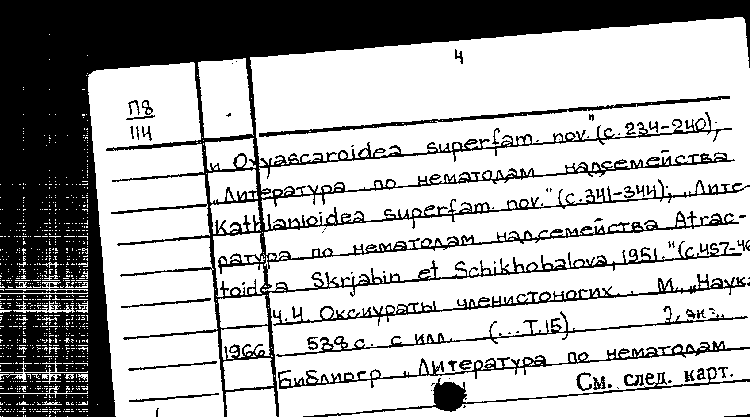 4
П8
114
и Oxyascaroidea superfam. nov." (с. 234-240);
„Литература по нематодам надсемейства
Kathlanioidea superfam. nov." (с. 341-344); „Лите-
ратура по нематодам надсемейства Atrac-
toidea Skrjabin et Schikhobalova, 1951." (с. 457-46
ч. 4. Оксиураты членистоногих. . М., „Наука
1966. 538 с. с илл. (...Т. 15). 2 экз.
Библиогр „Литература по нематодам
См. след. карт.